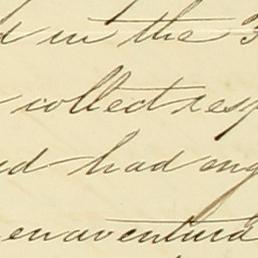 d in the 3
collect resp
ed had eng
enaventura